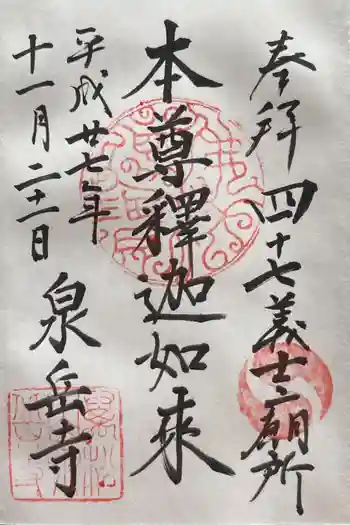 奉拝 四十七義士廟所
本尊釋迦如来
平成廿七年
十一月二十一日
泉岳寺